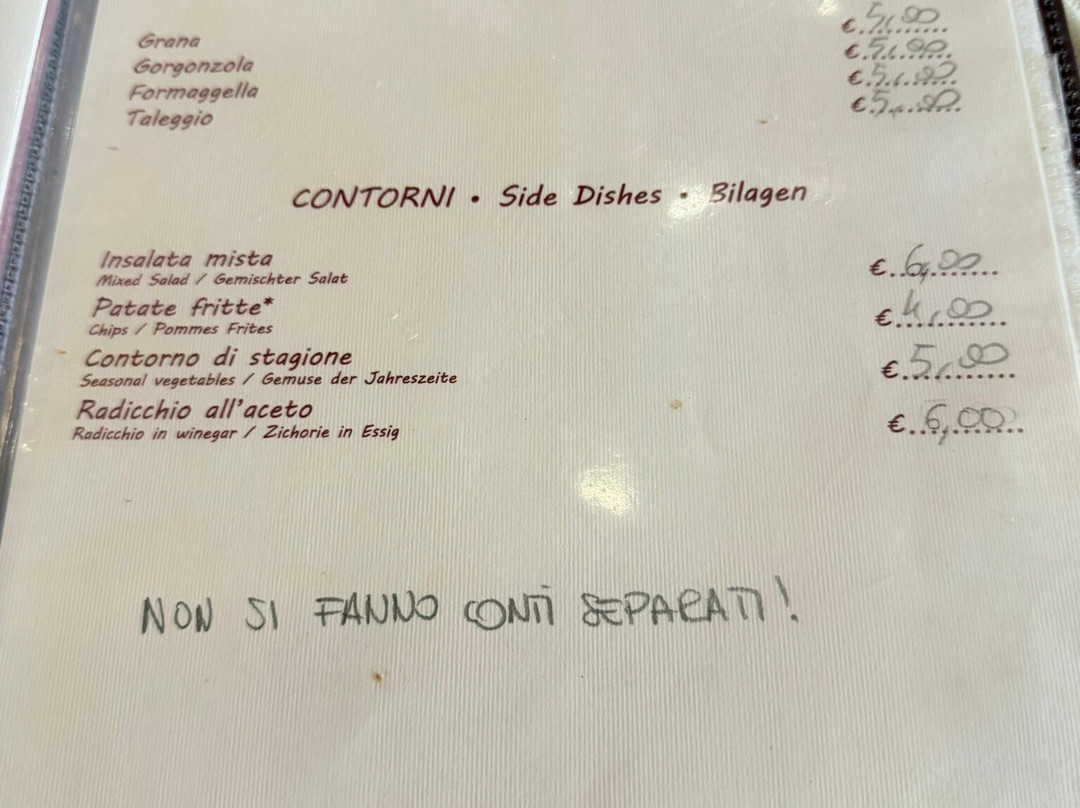 Grana € 5,00
Gorgonzola € 5,00
Formaggella € 5,00
Taleggio € 5,00
CONTORNI • Side Dishes • Bilagen
Insalata mista € 6,00
Mixed Salad / Gemischter Salat
Patate fritte* € 4,00
Chips / Pommes Frites
Contorno di stagione € 5,00
Seasonal vegetables / Gemuse der Jahreszeite
Radicchio all'aceto € 6,00
Radicchio in winegar / Zichorie in Essig
NON SI FANNO CONTI SEPARATI!